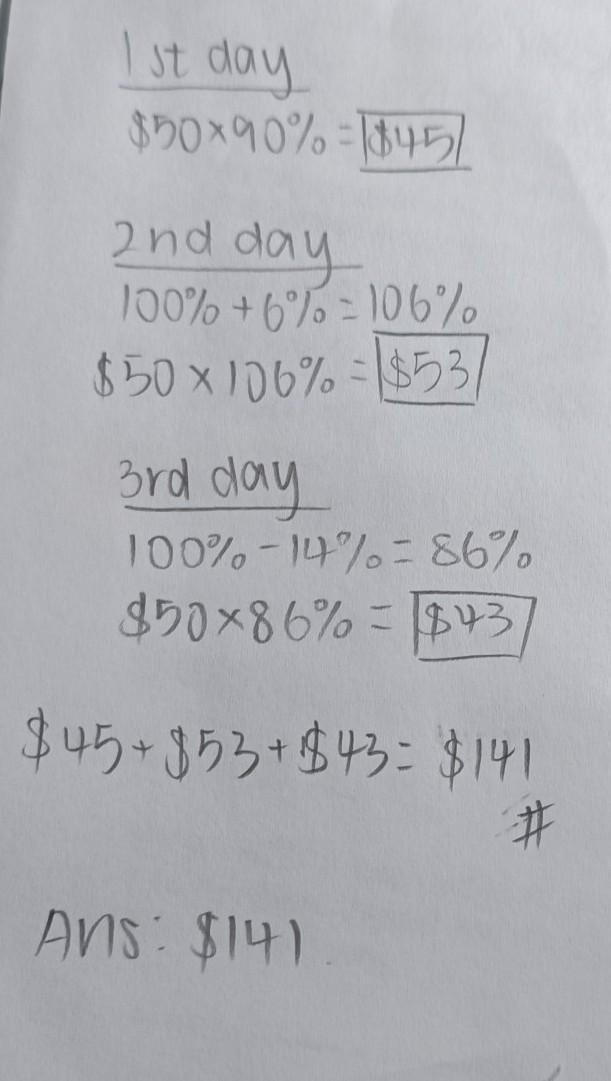 1st day
$50×90% = $45
2nd day
100% + 6% = 106%
$50 × 106% = $53
3rd day
100% - 14% = 86%
$50×86% = $43
$45 + $53 + $43 = $141
#
Ans: $141.